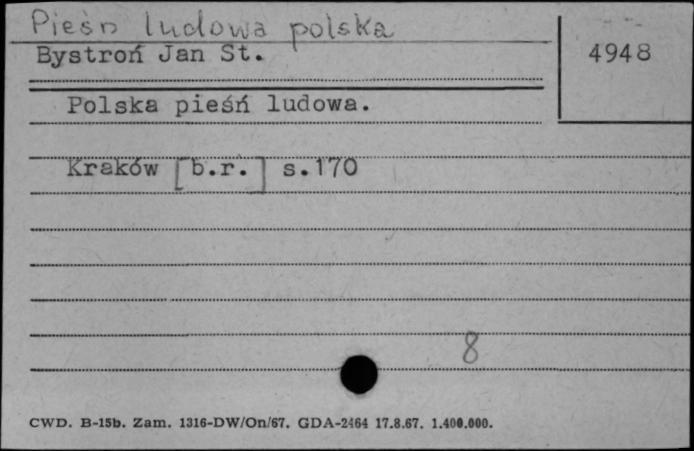 Pieśń ludowa polska
Bystroń Jan St.
4948
Polska pieśń ludowa.
Kraków [b.r.] s.170
8
CWD. B-15b. Zam. 1316-DW/On/67. GDA-2464 17.8.67. 1.400.000.